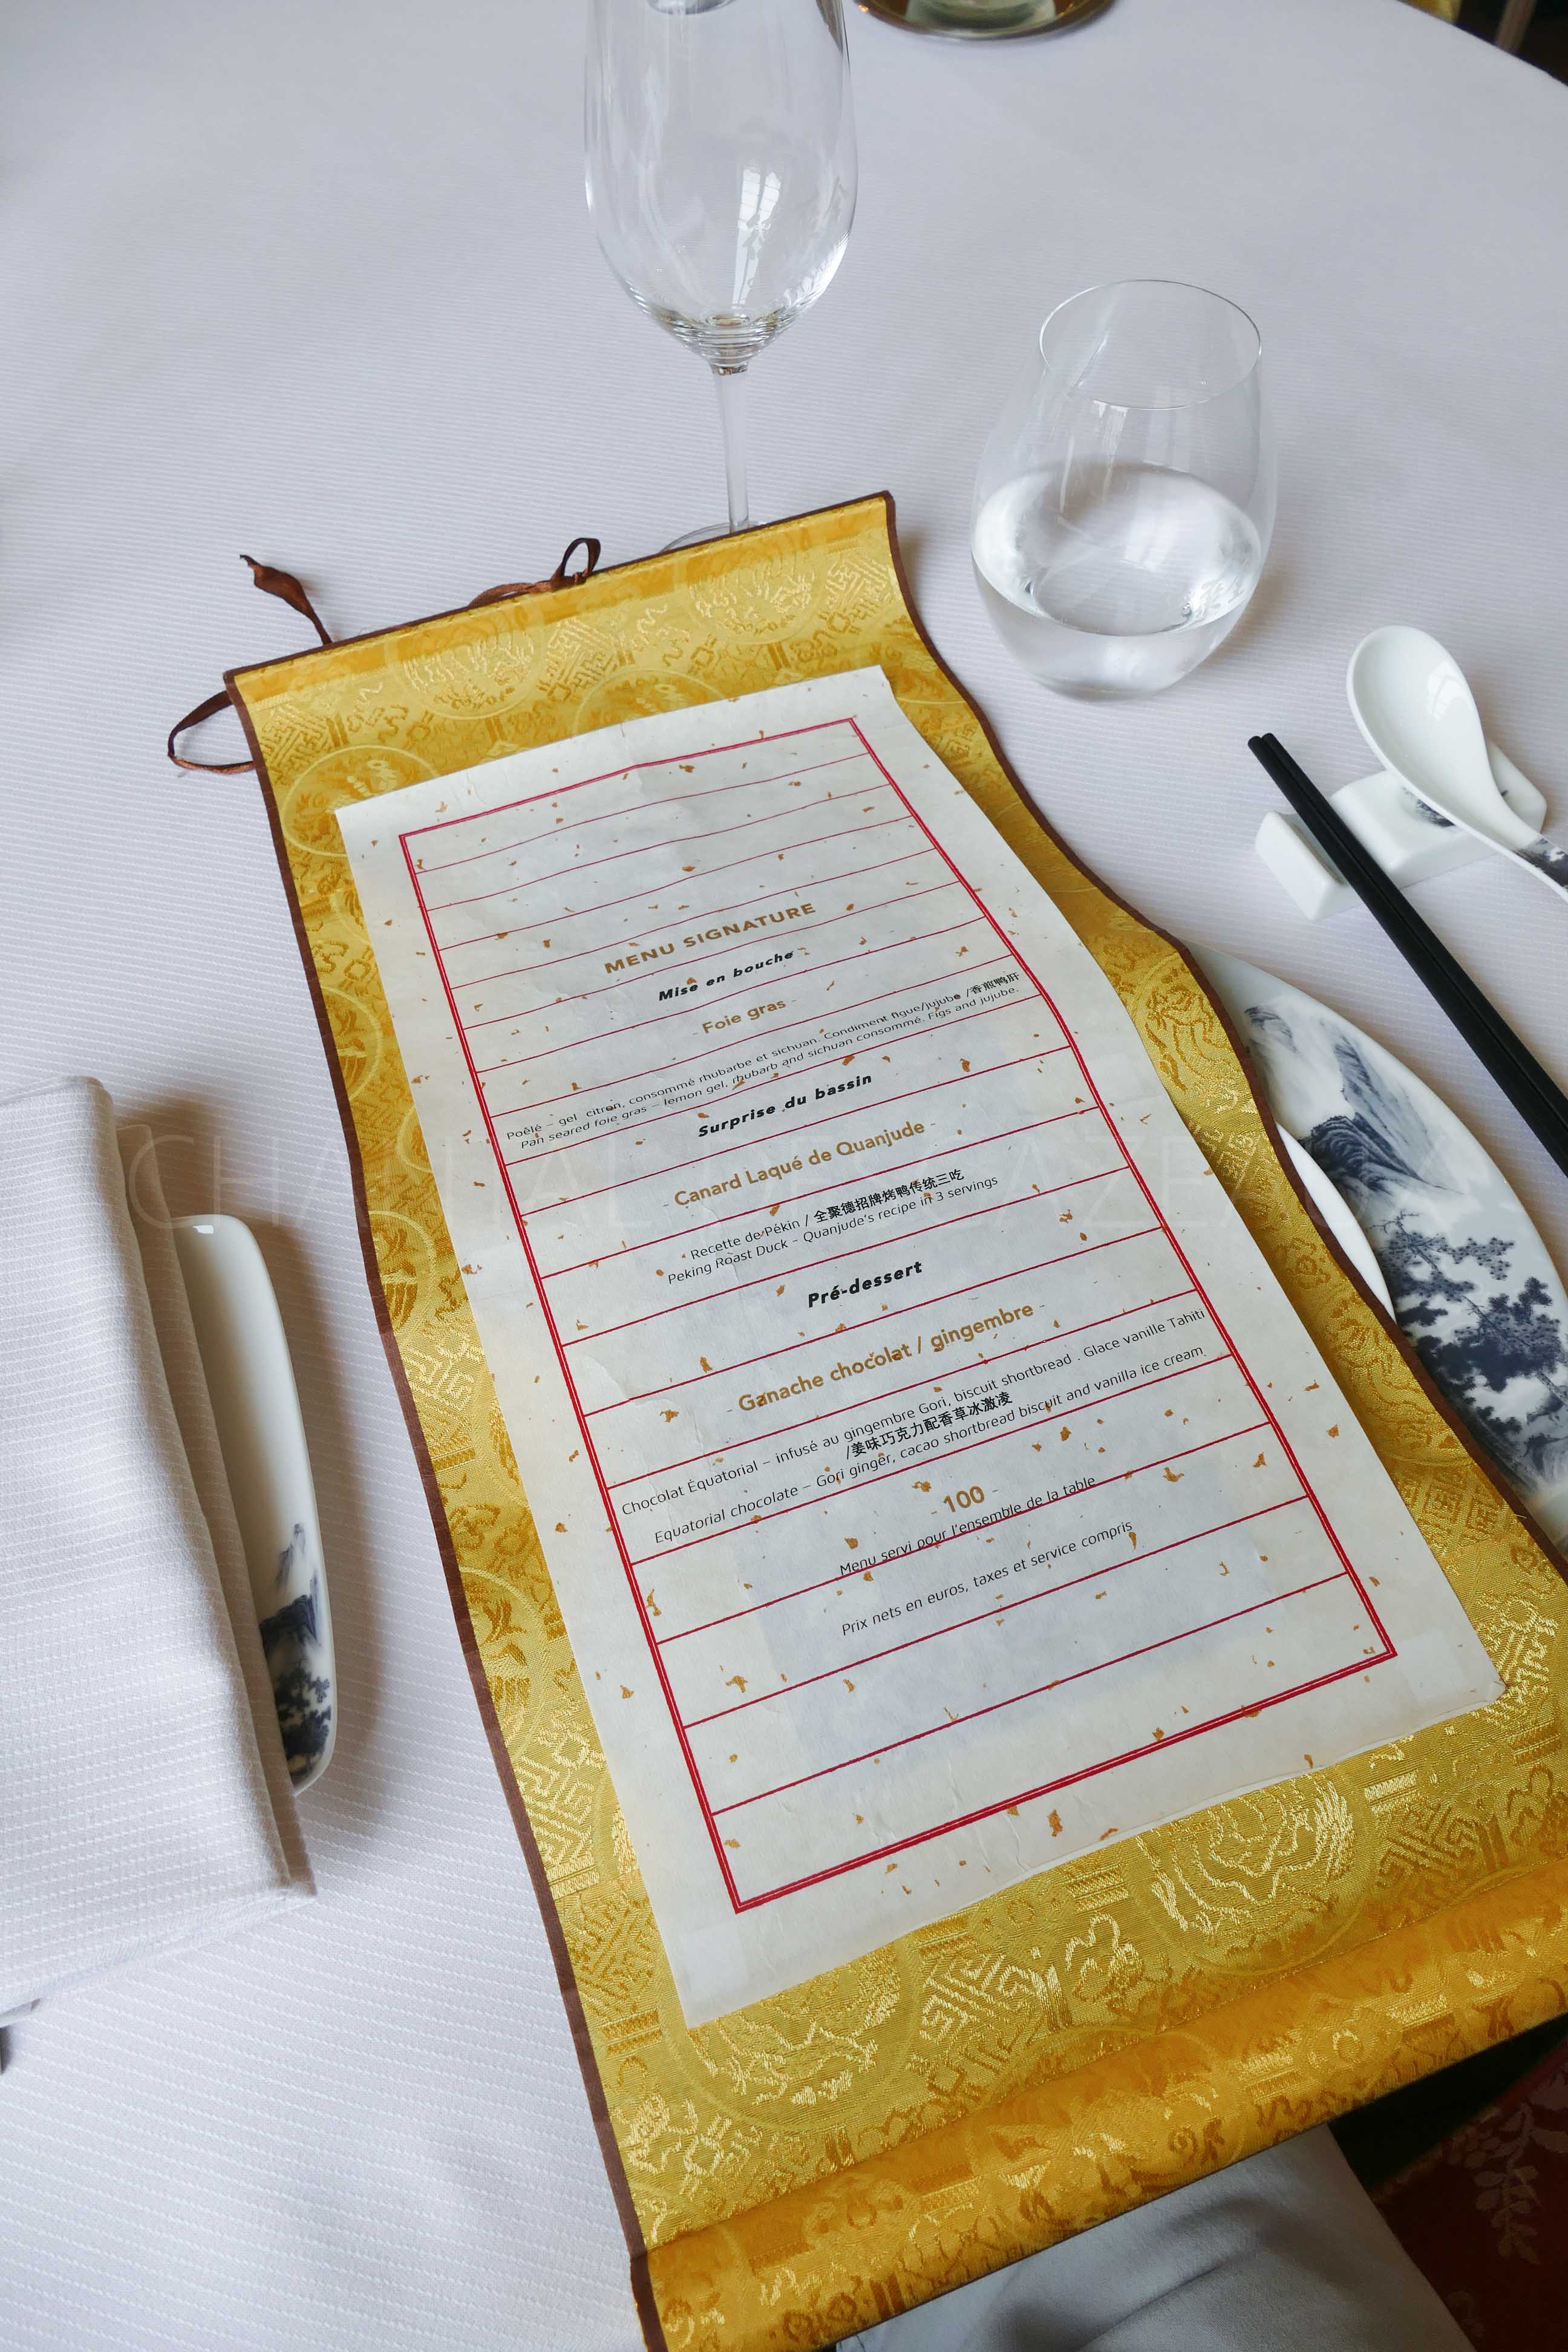 MENU SIGNATURE
Mise en bouche
- Foie gras -
Poêlé – gel citron, consommé rhubarbe et sichuan. Condiment figue/jujube /香煎鸭肝
Pan seared foie gras – lemon gel, rhubarb and sichuan consommé. Figs and jujube.
Surprise du bassin
- Canard Laqué de Quanjude -
Recette de Pékin / 全聚德招牌烤鸭传统三吃
Peking Roast Duck - Quanjude's recipe in 3 servings
Pré-dessert
- Ganache chocolat / gingembre -
Chocolat Équatorial – infusé au gingembre Gori, biscuit shortbread . Glace vanille Tahiti
/姜味巧克力配香草冰激凌
Equatorial chocolate – Gori ginger, cacao shortbread biscuit and vanilla ice cream.
- 100 -
Menu servi pour l'ensemble de la table
Prix nets en euros, taxes et service compris
CHANTAL